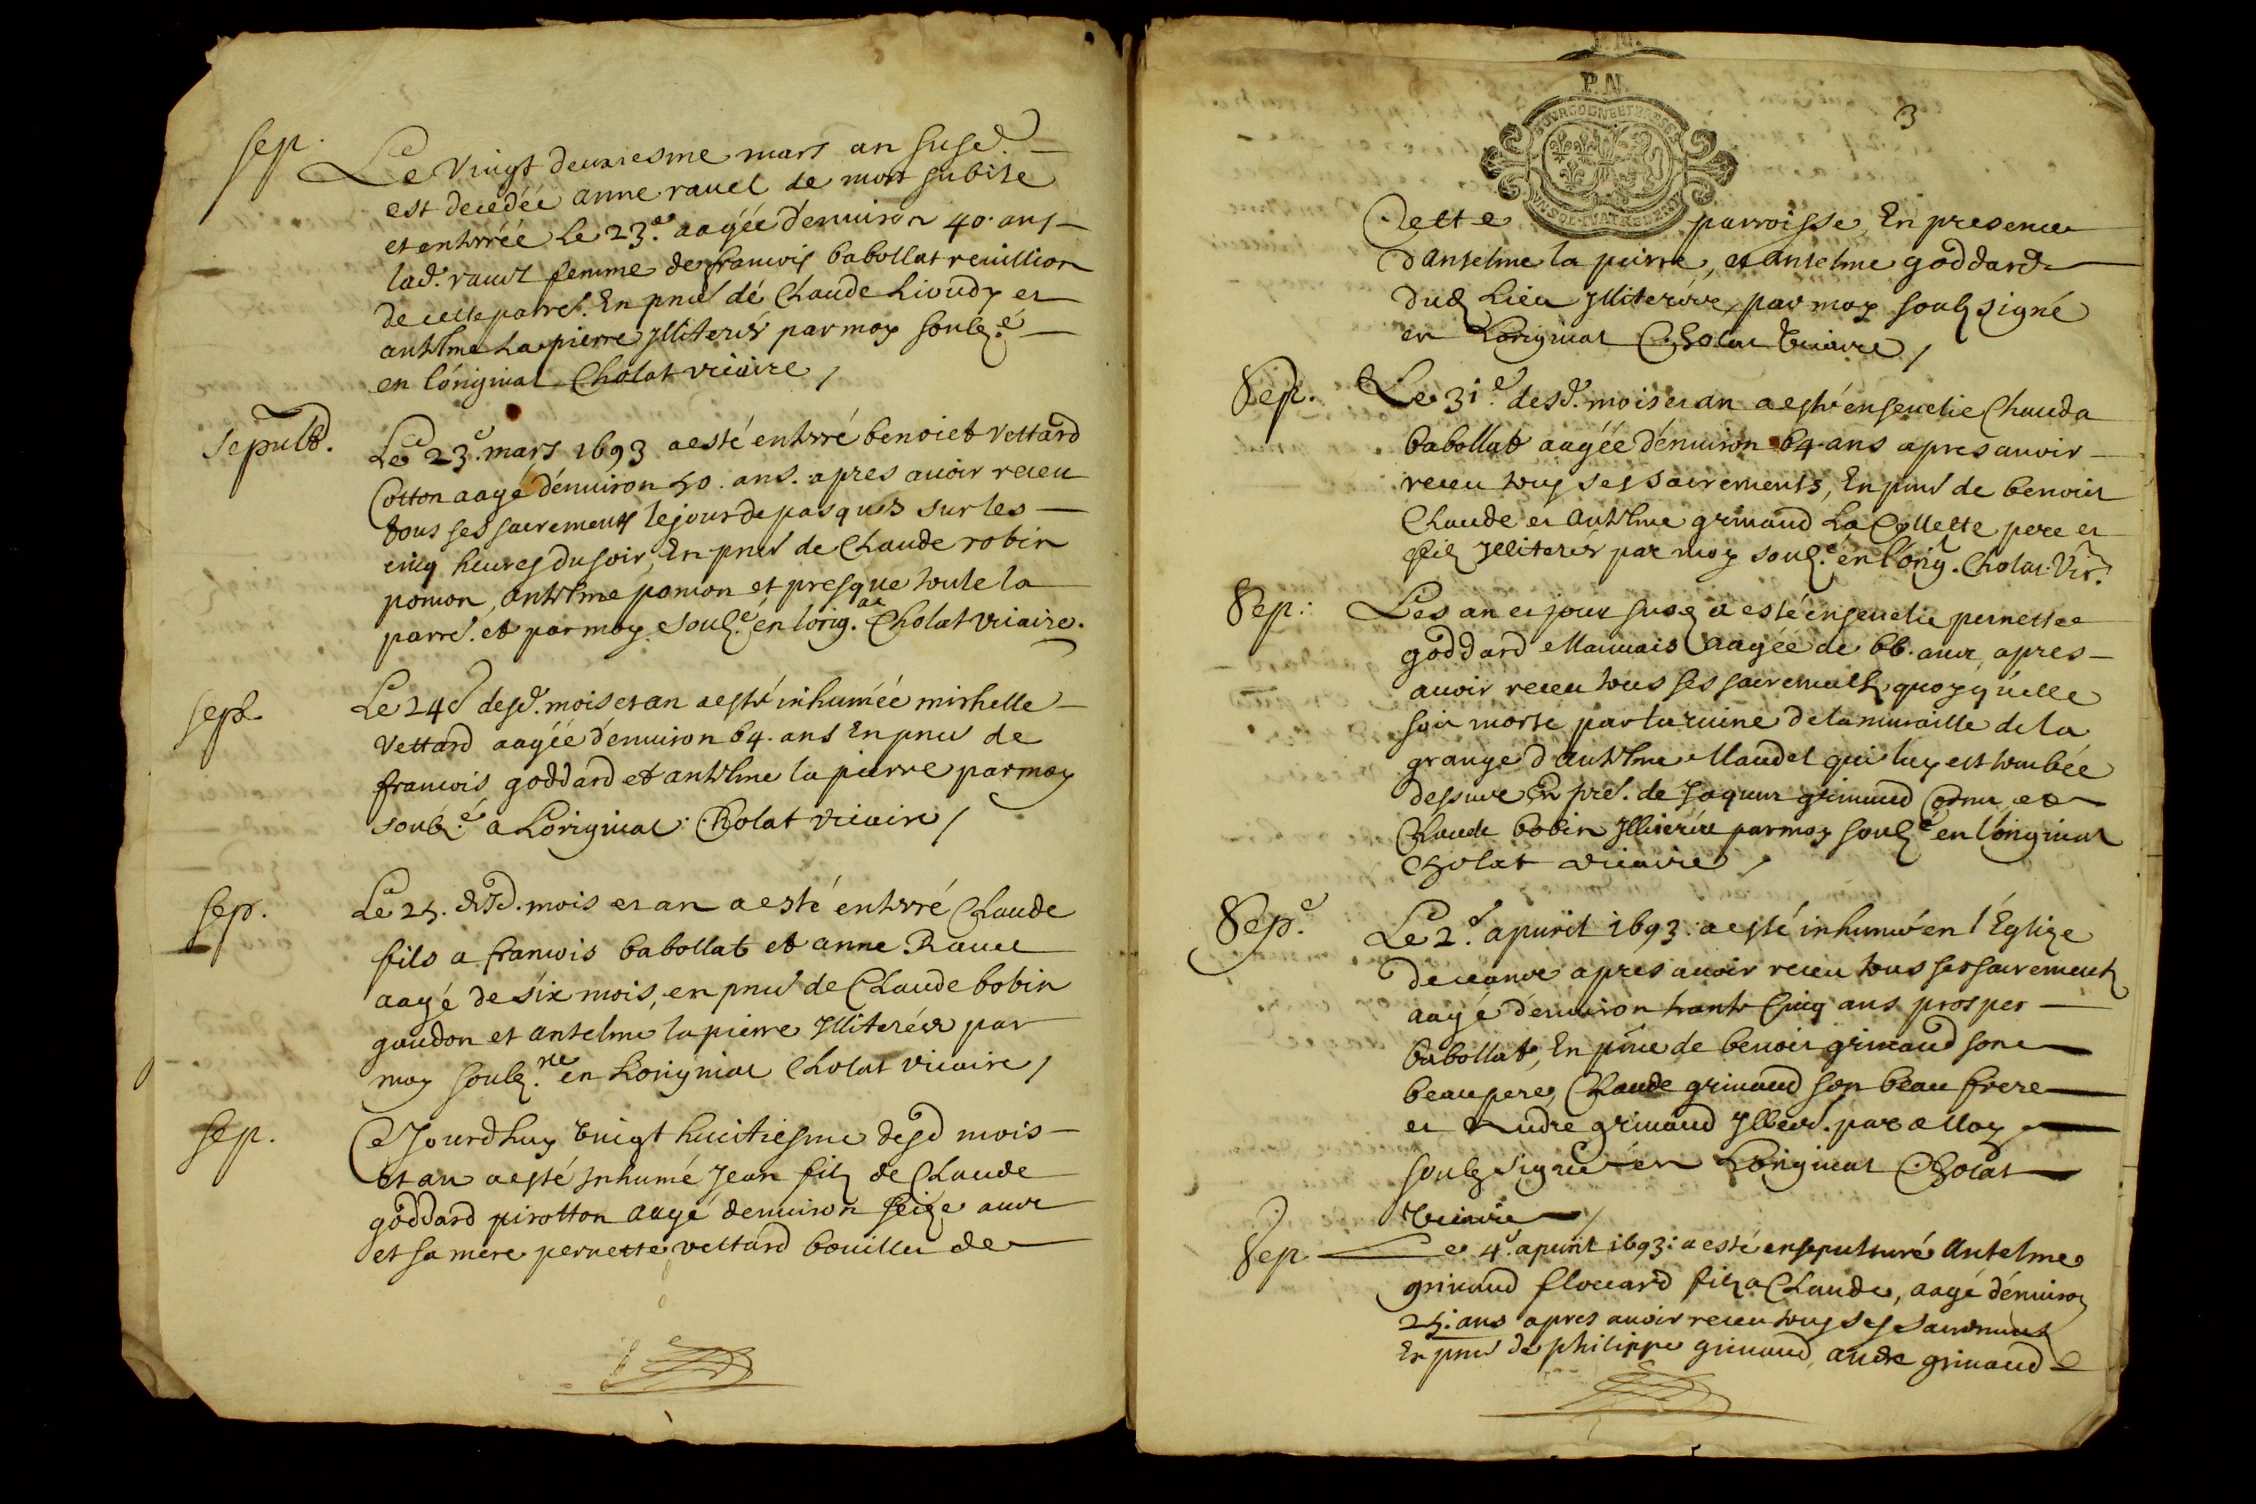 sep.
Le vingt deuxiesme mars an susd.
est decedée anne ravel de mort subite
et enterrée le 23.e aagée d'enuiron 40. ans
lad. ravel femme de francois babollat reuillion
de cette parre. En pnce de Claude Lioudy et
anthelme Lapierre Illiterés par moy soubz.é
en l'original Cholat vicaire /
sepult.
Le 23.e mars 1693 a esté enterré benoict vettard
Cotton aagé d'enuiron 50. ans. apres auoir receu
tous ses sacrements le jour de pasques sur les
cinq heures du soir, En pnce de Claude robin
poncon, anthelme poncon et presque toute la
parre. et par moy soubz.é en l'orig.al Cholat vicaire.
sep.
Le 24e desd. mois et an a esté inhumée michelle
vettard aagée d'enuiron 64. ans En pnce de
francois goddard et anthelme la pierre par moy
soubz.é a Loriginal Cholat vicaire /
sep.
Le 25. desd. mois et an a esté enterré Claude
fils a francois babollat et anne Rauel
aagé de six mois, en pnce de Claude bobin
gaudon et antelme la pierre Illiterés par
moy soubz.né en Loriginal Cholat vicaire /
sep.
Ce Jourdhuy vingt huictiesme desd mois
et an a esté Inhumé Jean filz de Claude
goddard pirotton aagé denuiron seize ans
et sa mere pernette vettard bouillu de
P.N.
3
Cette parroisse, En presence
d'antelme la peirre, et antelme goddard
dud. Lieu Illiterés, par moy soubzsigné
en Loriginal Cholat vicaire /
Sep.
Le 31.e desd. mois et an a esté enseuelie Clauda
babollat aagée d'enuiron 64 ans apres auoir
receu tous ses sacrements, En pnce de benoict
Claude et anthelme grimaud La Collette pere et
filz Illiterés par moy soubz.é en l'orig.l Cholat Vic.re
Sep.
Les an et jour susd. a esté enseuelie pernette
goddard Mauuais aagée de 66. ans, apres
auoir receu tous ses sacrements quoyqu'elle
soit morte par la ruine de la muraille de la
grange d'anthelme Maudet qui luy est tombée
dessus En pres. de Jaques grimaud Cornu et
Claude bobin Illiterés par moy soubz.é en l'original
Cholat vicaire /
Sep.e
Le 2.e apuril 1693. a esté inhumé en l'Eglize
de ceans apres auoir receu tous ses sacrements
aagé d'enuiron trante Cinq ans prosper
babollat, En pnce de benoict grimaud son
beaupere, Claude grimaud son beau frere
et Andre grimaud Illiterés. par Moy
soubz signé en Loriginal Cholat
vicaire /
Sep
Le 4.e apuril 1693: a esté ensepulturé Antelme
grimaud flouard filz a Claude, aagé d'enuiron
25. ans apres auoir receu tous ses sacrements
En pnce de philippe grimaud, andre grimaud